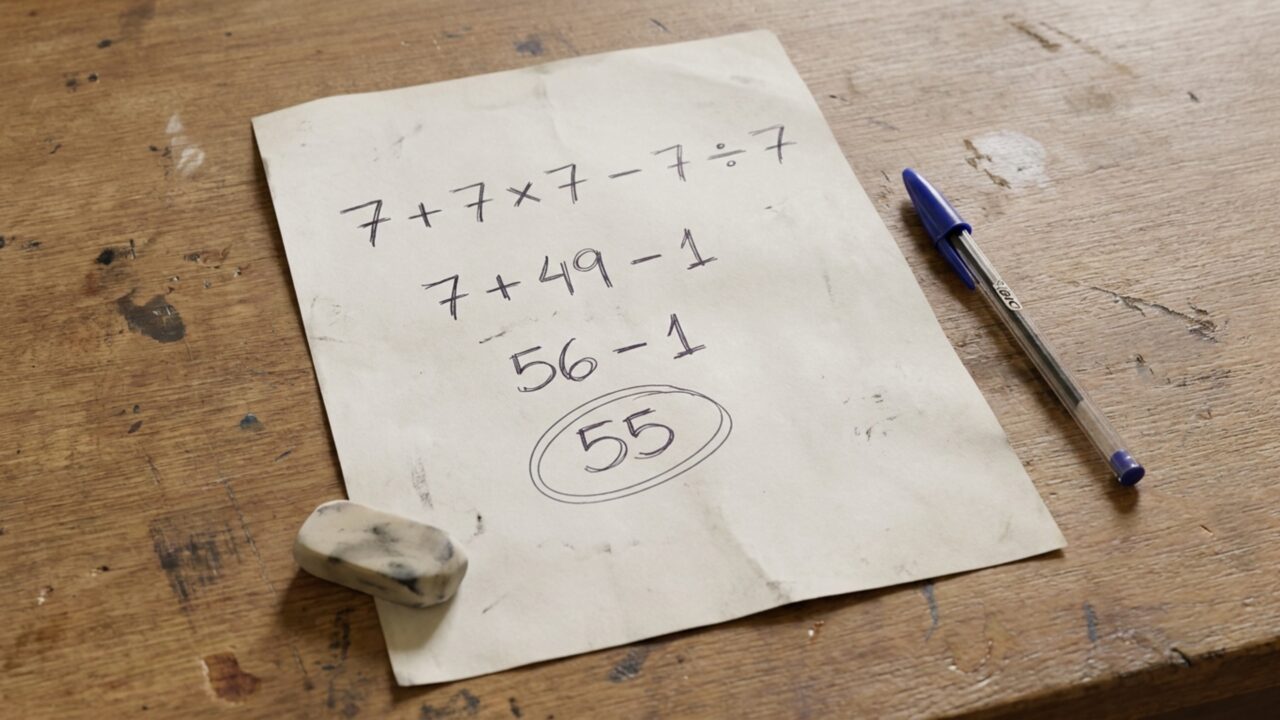 7 + 7 × 7 − 7 ÷ 7
7 + 49 − 1
56 − 1
55
BIC